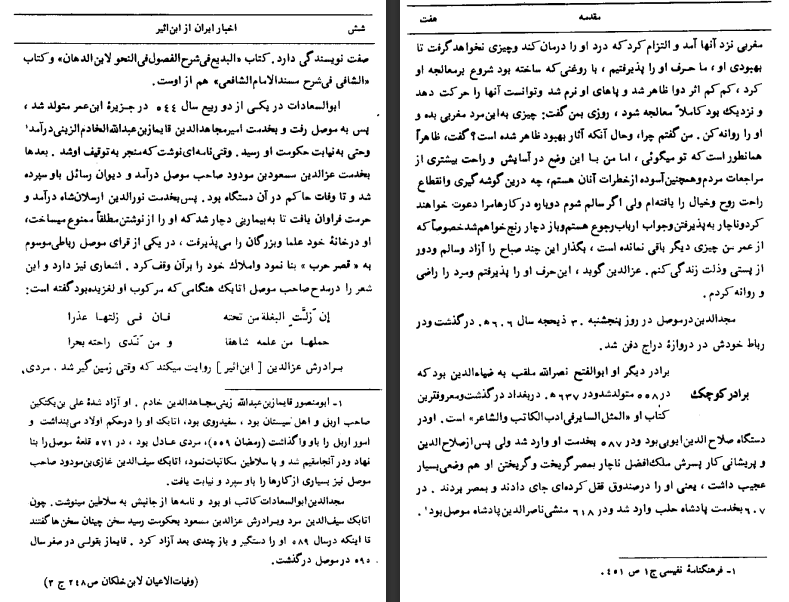 شش
اخبار ایران از ابن‌اثیر
صفت نویسندگی دارد. کتاب «البدیع فی شرح الفصول فی النحو لابن الدهان» و کتاب
«الشافی فی شرح مسند الامام الشافعی» هم از اوست.
ابوالسعادات در یکی از دو ربیع سال ۵۴۴ در جزیرهٔ ابن عمر متولد شد،
پس به موصل رفت و بخدمت امیر مجاهدالدین قایماز بن عبدالله الخادم الزینی درآمد۱
وحتی به نیابت حکومت او رسید. وقتی نامه‌ای نوشت که منجر به توقیف او شد. بعدها
بخدمت عزالدین مسعود بن مودود صاحب موصل درآمد و دیوان رسائل باو سپرده
شد و تا وفات حاکم در آن دستگاه بود. پس بخدمت نورالدین ارسلانشاه درآمد و
حرمت فراوان یافت تا به بیماریی دچار شد که او را از نوشتن مطلقاً ممنوع میساخت،
او درخانهٔ خود علما وبزرگان را می‌پذیرفت، در یکی از قرای موصل رباطی موسوم
به «قصر حرب» بنا نمود واملاک خود را برآن وقف کرد. اشعاری نیز دارد و این
شعر را درمدح صاحب موصل اتابک هنگامی که مرکوب او لغزیده بود گفته است:
إن زلّت البغلة من تحته فان فی زلتها عذرا
حملها من علمه شاهقا و من نَدی راحته بحرا
برادرش عزالدین [ابن‌اثیر] روایت میکند که وقتی زمین گیر شد. مردی
۱- ابومنصور قایماز بن عبدالله زینی مجاهدالدین خادم. او آزاد شدهٔ علی بن بکتکین
صاحب اربل و اهل سیستان بود، سفیدروی بود، اتابک او را درحکم اولاد می‌پنداشت و
امور اربل را باو واگذاشت (رمضان ۵۵۹)، مردی عادل بود، در ۵۷۱ قلعهٔ موصل را بنا
نهاد ودر آنجا مقیم شد و با سلاطین مکاتبات نمود، اتابک سیف‌الدین غازی بن مودود صاحب
موصل نیز بسیاری از کارها را باو سپرد و نیابت یافت.
مجدالدین ابوالسعادات کاتب او بود و نامه‌ها از جانبش به سلاطین مینوشت. چون
اتابک سیف‌الدین مرد وبرادرش عزالدین مسعود بحکومت رسید سخن چینان سخن‌ها گفتند
تا اینکه درسال ۵۸۹ او را دستگیر و باز چندی بعد آزاد کرد. قایماز بقولی در صفر سال
۵۹۵ در موصل درگذشت.
(وفیات الاعیان لابن خلکان ص۲۴۸ ج ۳)
مقدمه
هفت
مغربی نزد آنها آمد و التزام کرد که درد او را درمان کند وچیزی نخواهد گرفت تا
بهبودی او، ما حرف او را پذیرفتیم، با روغنی که ساخته بود شروع بمعالجه او
کرد، کم کم اثر دوا ظاهر شد و پاهای او نرم شد وتوانست آنها را حرکت دهد
و نزدیک بود کاملاً معالجه شود، روزی بمن گفت: چیزی به این مرد مغربی بده و
او را روانه کن. من گفتم چرا، وحال آنکه آثار بهبود ظاهر شده است؟ گفت، ظاهرآ
همانطور است که تو میگوئی، اما من با این وضع در آسایش و راحت بیشتری از
مراجعات مردم وهمچنین آسوده ازخطرات آنان هستم، چه درین گوشه گیری وانقطاع
راحت روح وخیال را یافته‌ام ولی اگر سالم شوم دوباره درکارها مرا دعوت خواهند
کرد وناچار به پذیرفتن وجواب ارباب رجوع هستم وباز دچار رنج خواهم شد خصوصاً که
از عمر من چیزی دیگر باقی نمانده است، بگذار این چند صباح را آزاد وسالم ودور
از پستی وذلت زندگی کنم. عزالدین گوید، این حرف او را پذیرفتم ومرد را راضی
و روانه کردم.
مجدالدین درموصل در روز پنجشنبه ۳۰ ذیحجه سال ۶۰۶ ه. درگذشت ودر
رباط خودش در دروازهٔ دراج دفن شد.
برادر کوچک
برادر دیگر او ابوالفتح نصرالله ملقب به ضیاءالدین بود که
در۵۵۸ متولد شد ودر ۶۳۷ ه. دربغداد درگذشت ومعروفترین
کتاب او «المثل السایر فی ادب الکاتب والشاعر» است. اودر
دستگاه صلاح الدین ایوبی بود ودر ۵۸۷ بخدمت او وارد شد ولی پس از صلاح الدین
و پریشانی کار پسرش ملک افضل ناچار بمصر گریخت وگریختن او هم وضعی بسیار
عجیب داشت، یعنی او را درصندوق قفل کرده‌ای جای دادند و بمصر بردند. در
۶۰۷ بخدمت پادشاه حلب وارد شد ودر ۶۱۸ منشی ناصرالدین پادشاه موصل بود۱.
۱- فرهنگنامهٔ نفیسی ج۱ ص ۴۵۱.